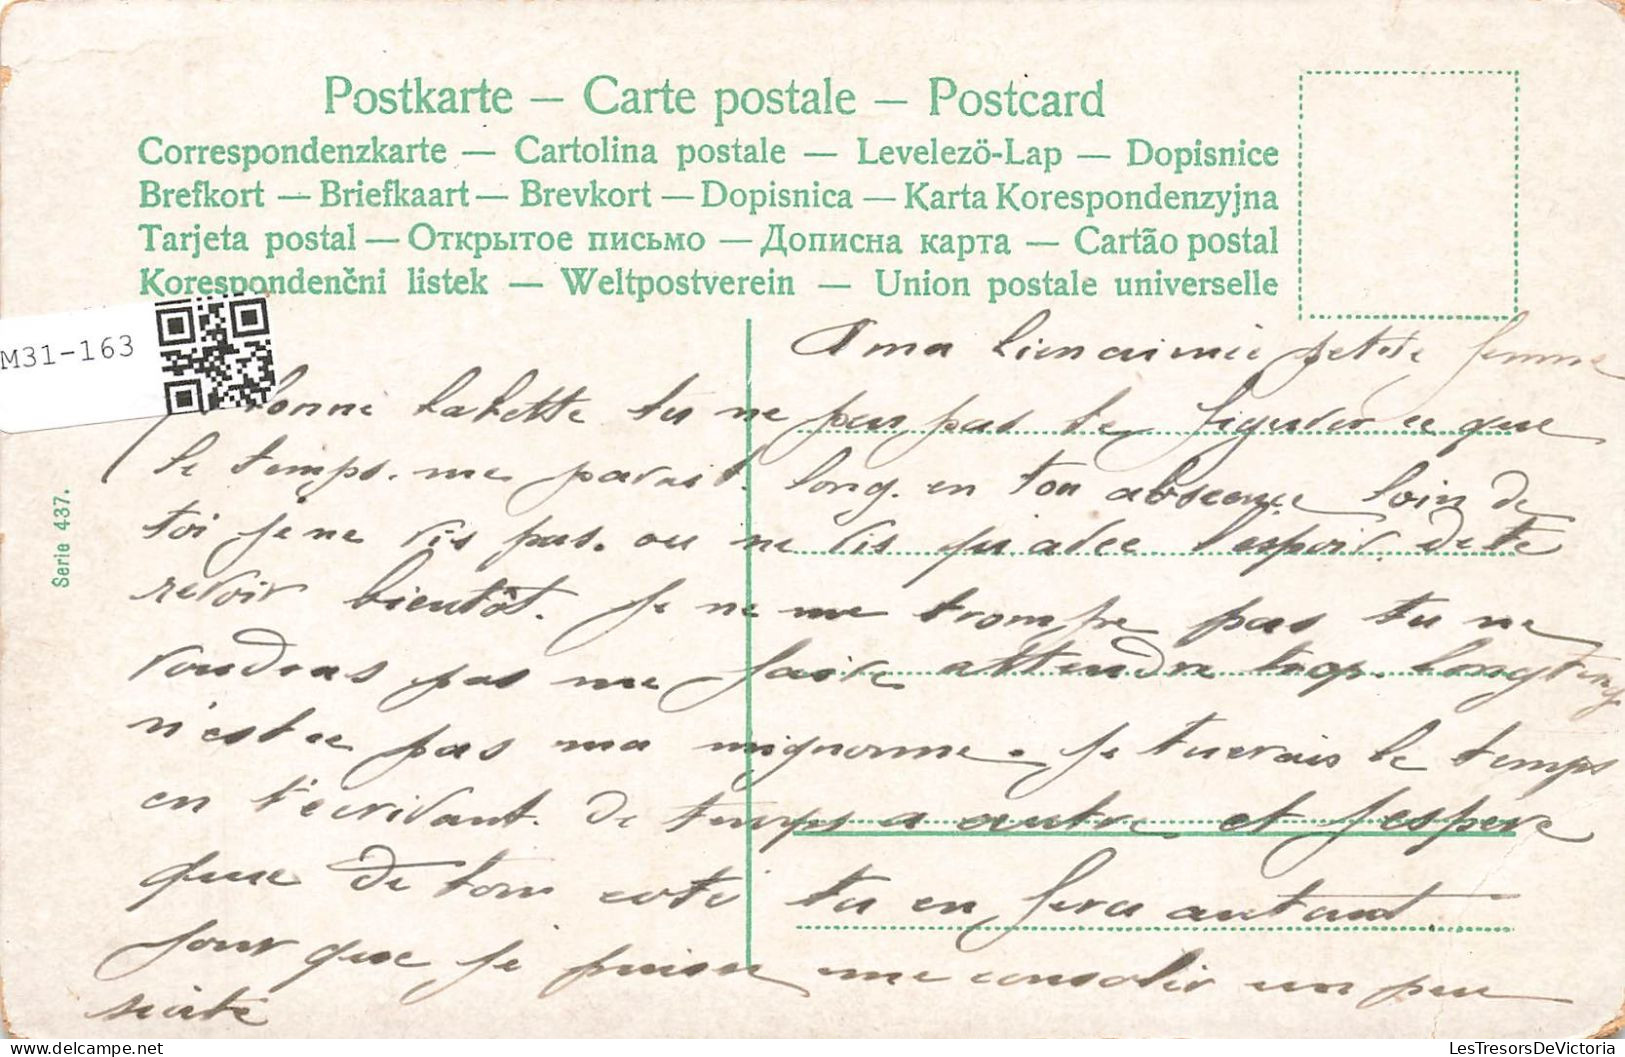 Postkarte — Carte postale — Postcard
Correspondenzkarte — Cartolina postale — Levelezö-Lap — Dopisnice
Brefkort — Briefkaart — Brevkort — Dopisnica — Karta Korespondenzyjna
Tarjeta postal — Открытое письмо — Дописна карта — Cartão postal
Korespondenční listek — Weltpostverein — Union postale universelle
M31-163
Serie 437.
A ma bien aimée petite femme
bonne tu ne peu pas te figurer ce que
le temps. me parait. long. en ton absence loin de
toi je ne vis pas. ou ne vis qu'avec l'espoir. de te
revoir bientôt. Je ne me trompe pas tu ne
voudras pas me faire attendre trop. longtemps
n'est ce pas ma mignonne. Je tuerais le temps
en t'écrivant. de temps a autre et j'espère
que de ton coté tu en fera autant
pour que je puisse me consoler un peu
suite
delcampe.net
LesTresorsDeVictoria